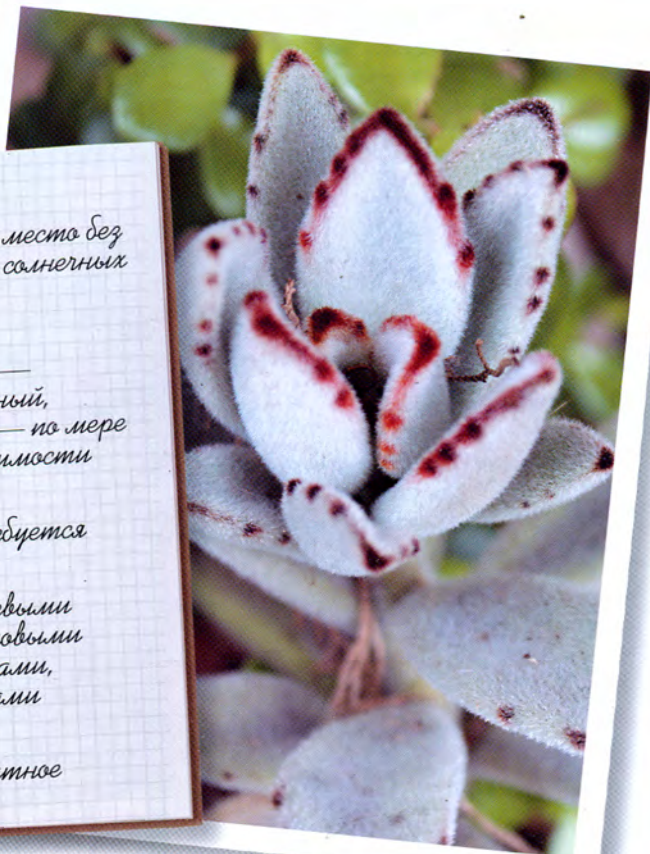 место без
солнечных
—
ный,
— по мере
имости
буется
евыми
овыми
ами,
ами
тное